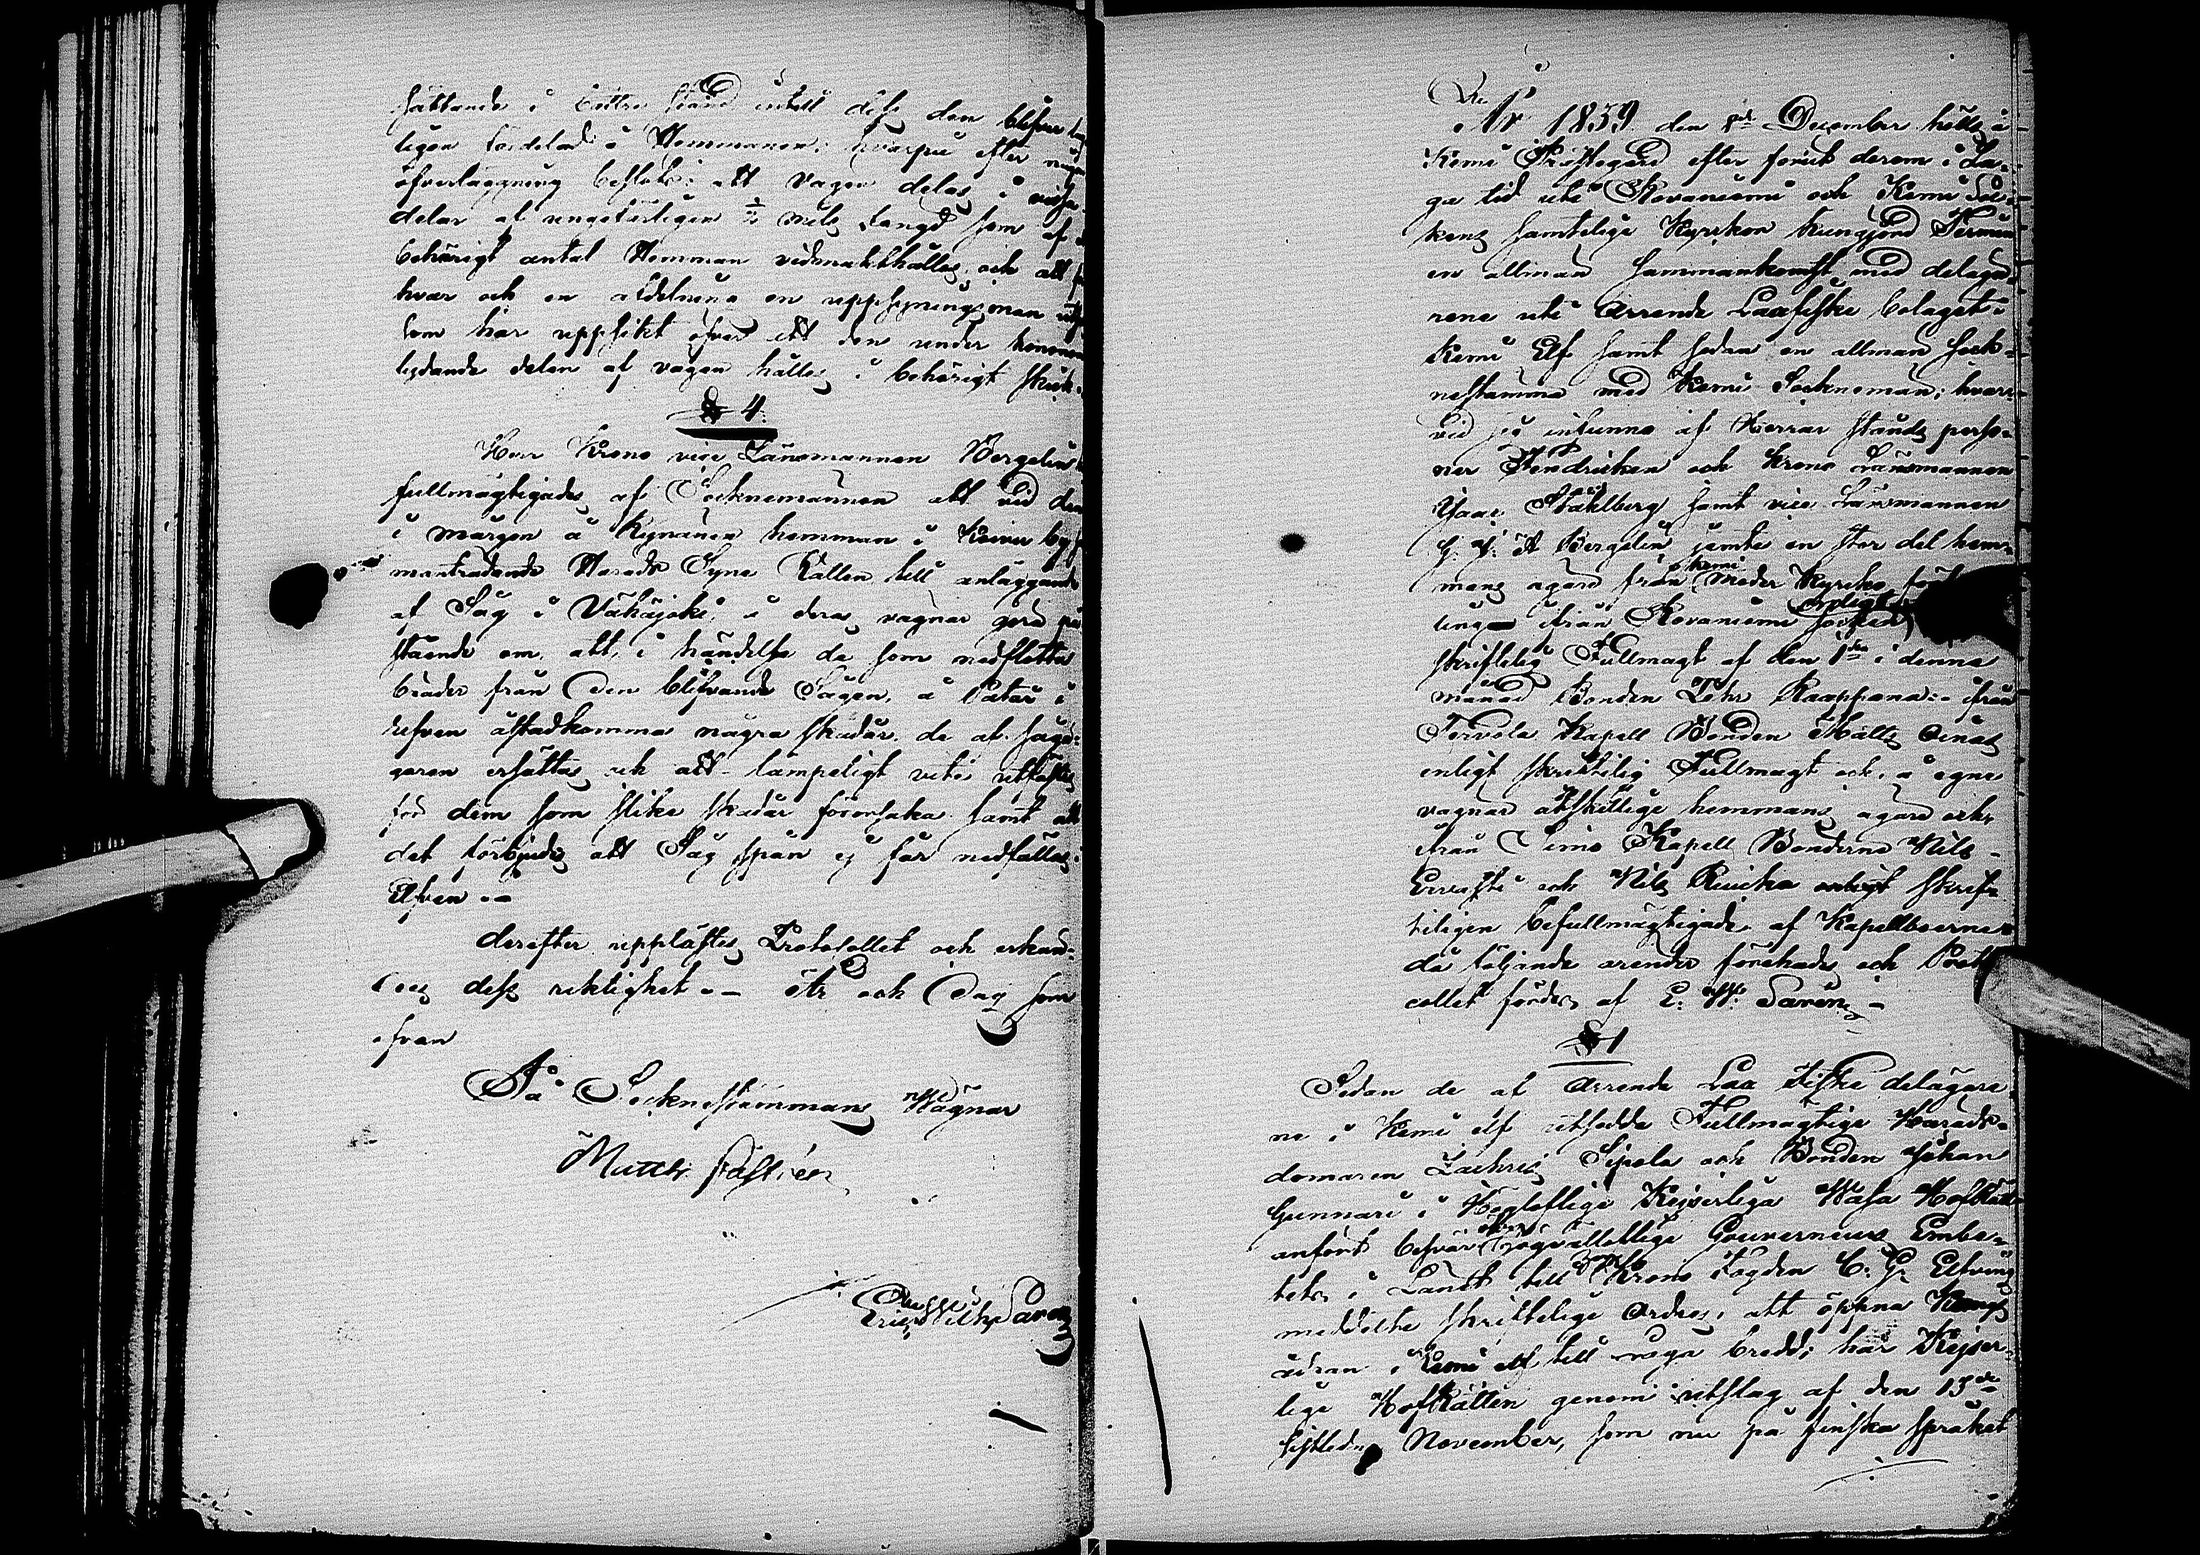 sättande i bättre stånd intill dess den blifver
ligen fördelad å Hemmanen; hvarpå efter
öfverläggning beslöts: att vägen delas i vissa
delar af ungefärligen ½ mils Längd som af
behörigt antal Hemman vidmakthålles, och att
hvar och en afdelning en uppsyningsman
som har uppsikt öfver att den under honom
lydande delen af vägen hålles i behörigt skick.
§ 4.
Herr Krono vice Länsmannen Bergelin
fullmägtigades af Socknemännen att vid den
i morgon å Kynänen hemman i Koivu by
manträdande Härads Syne Rätten till anläggande
af Såg i Vähäjoki, å deras vägnar göra på
stående om, att, i händelse de som nedflotta
bräder från den blifvande Sågen, å Pator i
elfven åstadkomma några skador, de af sågä-
garen ersättas och att lämpeligt vite utsättes
för dem som slika skador förorsaka samt att
det förbjudes att Såg spån ej får nedfällas i
Elfven. -
derefter upplästes Protokollet och erkän-
des dess riktighet. - År och Dag som
ofvan
På Sockneståmmans Wägnar
Matth. Castrén
Eric Wilh. Saren
År 1839 den 8de December hölls å
Kemi Prästegård efter förut derom i La-
ga tid uti Rovaniemi och Kemi Soc-
kens samtelige Kyrkor kungjord Termin
en allmän sammankomst med delägar-
rene uti Arrende Laxfiske bolaget i
Kemi Elf samt sedan en allmän sock-
nestämma med Kemi Socknemän; hvar-
vid sig infunno af Herrar stånds perso-
ner Fendricken och Krono Länsmannen
Isac Ståhlberg samt vice Länsmannen
G. A. Bergelin jemte en stor del hem-
mans ägare från Kemi Moder Kyrko
ling ifrån Rovaniemi Socken enligt
skriftelig Fullmagt af den 1sta i denna
månad Bonden Johan Kauppana: ifrån
Tervola Kapell Bonden Matts Oinas
enligt skriftelig Fullmagt och å egne
vägnar åtskillige hemmans ägare och,
från Simo Kapell Bönderne Nils
och Nils Ruicka enligt skrif-
teligen befullmägtigade af Kapellboerne
då följande ärender förehades och Proto
collet fördes af E. W. Sarén. -
§ 1
Sedan de af Arrende Lax Fiske delägare
ne i Kemi elf utsedde Fullmägtige Härads-
domaren Zachris Sipola och Bonden Johan
Gunnari i Högloflige Kejserliga Wasa Hofrätt
anfört besvär öfver Högvällofliga Gouverneurs Embe-
tets i Länet till Krono Fogden C. G. Elfving
meddelte skriftelige Ordres, att öppna Kungs
ådran i Kemi elf till noga bredd; har Kejser-
lige Hofrätten genom utslag af den 15de
sistledne November, som nu på finska språket